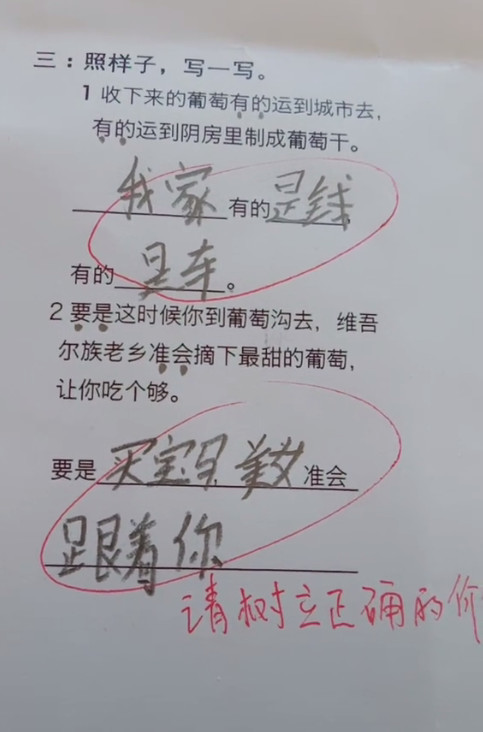 三：照样子，写一写。
1 收下来的葡萄有的运到城市去，
有的运到阴房里制成葡萄干。
我家有的是钱，
有的是车。
2 要是这时候你到葡萄沟去，维吾
尔族老乡准会摘下最甜的葡萄，
让你吃个够。
要是买宝马，美女准会
跟着你
请树立正确的价